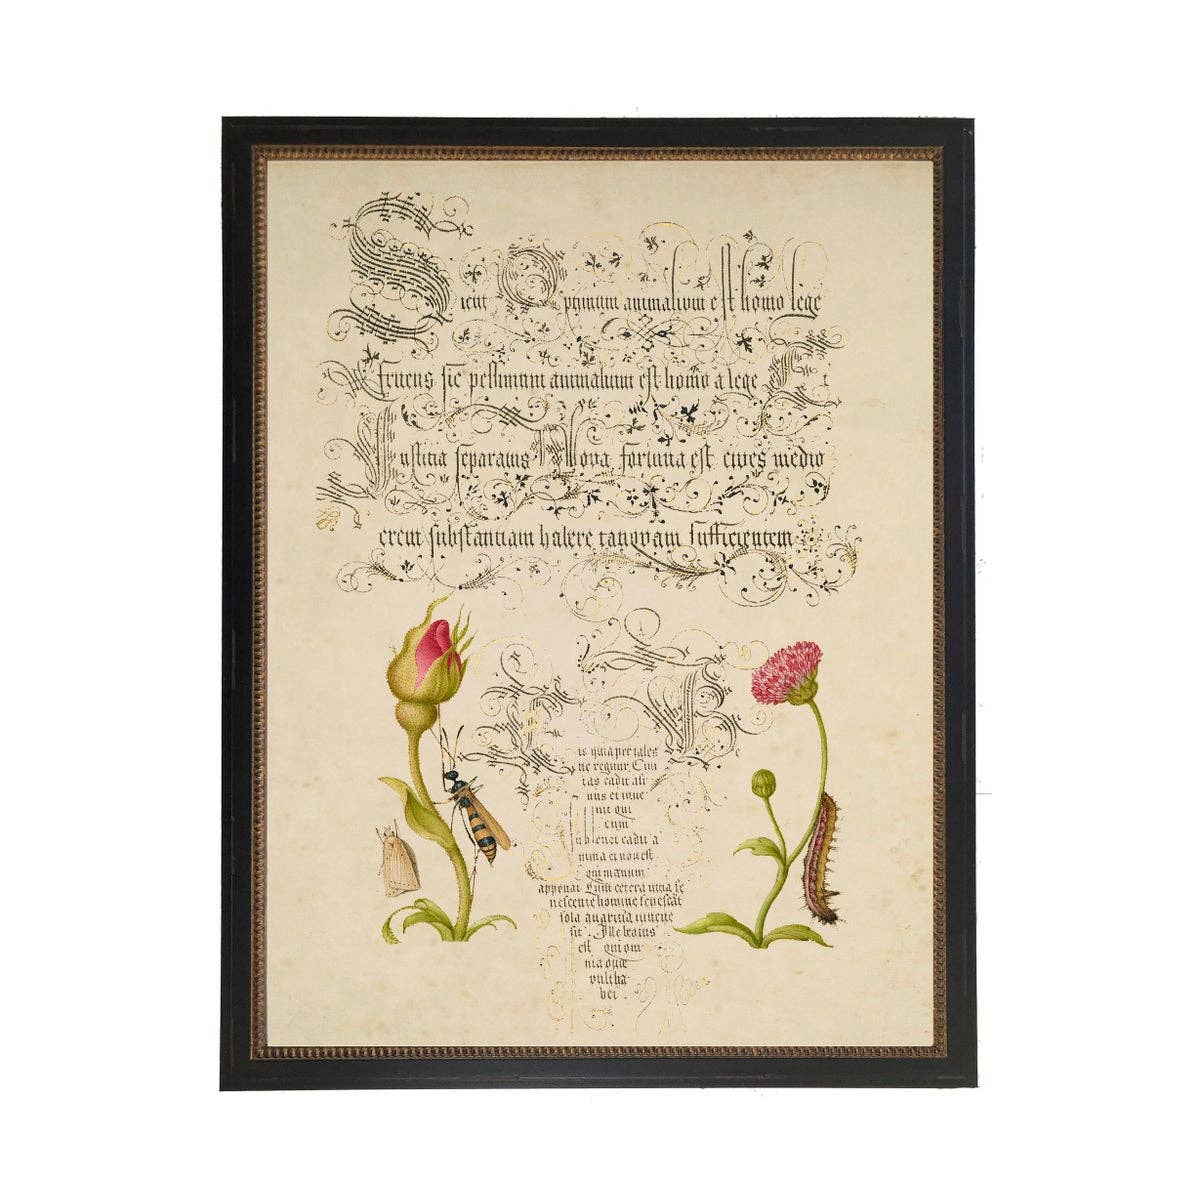 Sicut Optimum animalium est homo lege
Fruens sic pessimum animalium est homo a lege Et
Iustitia separatus Nova fortuna est cives medio
crem substantiam habere tanquam sufficientem
is quia per tales
ne regnur Ciui
tas cadit
nus et inue
nit qui
cum
Subuenet eadit a
nima et non est
qui manum
apponat Cum cetera uitia se
nescente homine senescat
sola auaritia iuuene
sit. Ille beatus
est qui om
nia quae
vult ha
bet.